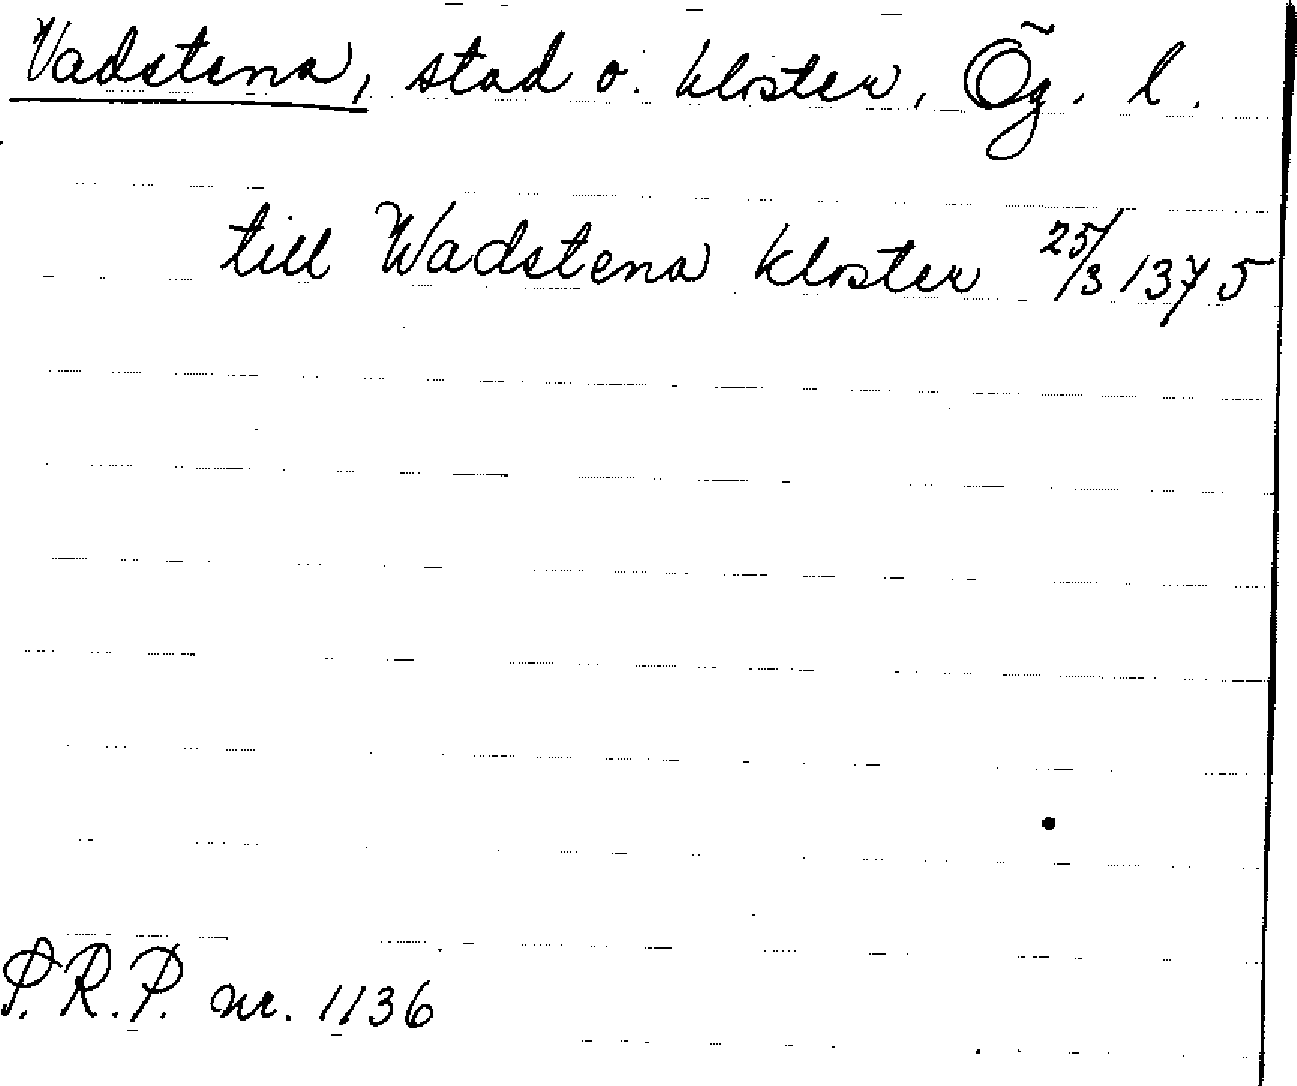 Vadstena, stad o. kloster, Ög. l.
till Wadstena kloster 25/3 1375
P.R.P. nr. 1136